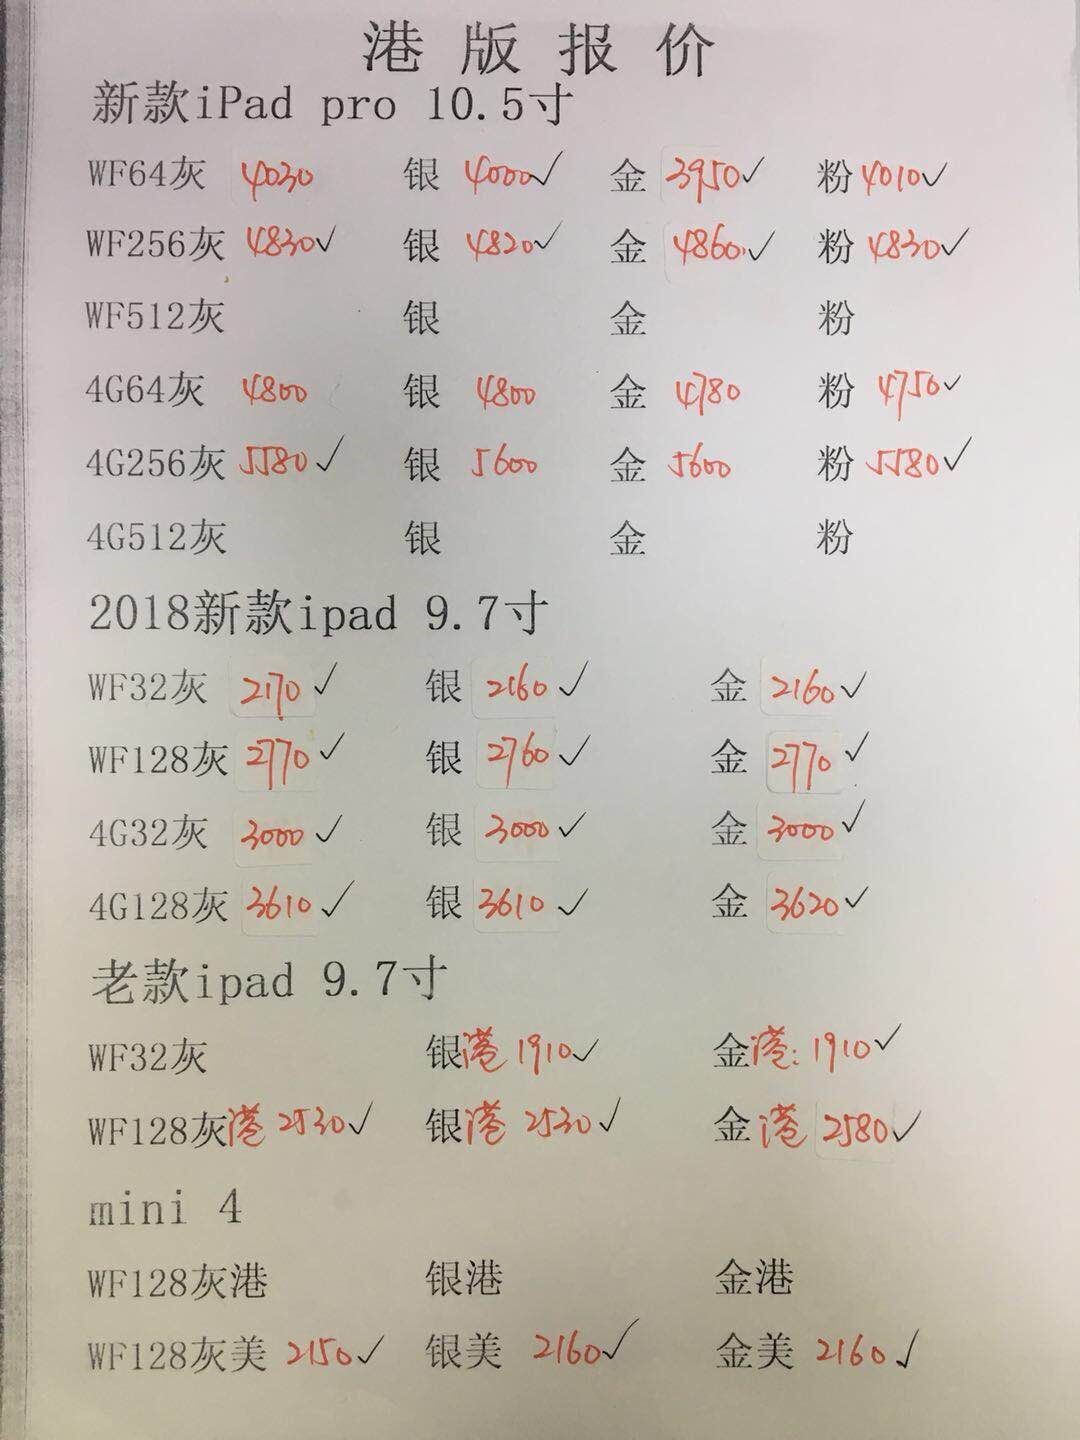 港版报价
新款iPad pro 10.5寸
WF64灰 4030 银 4000✓ 金 3950✓ 粉 4010✓
WF256灰 4830✓ 银 4820✓ 金 4860✓ 粉 4830✓
WF512灰 银 金 粉
4G64灰 4800 银 4800 金 4780 粉 4750✓
4G256灰 5580✓ 银 5600 金 5600 粉 5580✓
4G512灰 银 金 粉
2018新款ipad 9.7寸
WF32灰 2170✓ 银 2160✓ 金 2160✓
WF128灰 2770✓ 银 2760✓ 金 2770✓
4G32灰 3000✓ 银 3000✓ 金 3000✓
4G128灰 3610✓ 银 3610✓ 金 3620✓
老款ipad 9.7寸
WF32灰 银港 1910✓ 金港: 1910✓
WF128灰港 2530✓ 银港 2530✓ 金港 2580✓
mini 4
WF128灰港 银港 金港
WF128灰美 2150✓ 银美 2160✓ 金美 2160✓